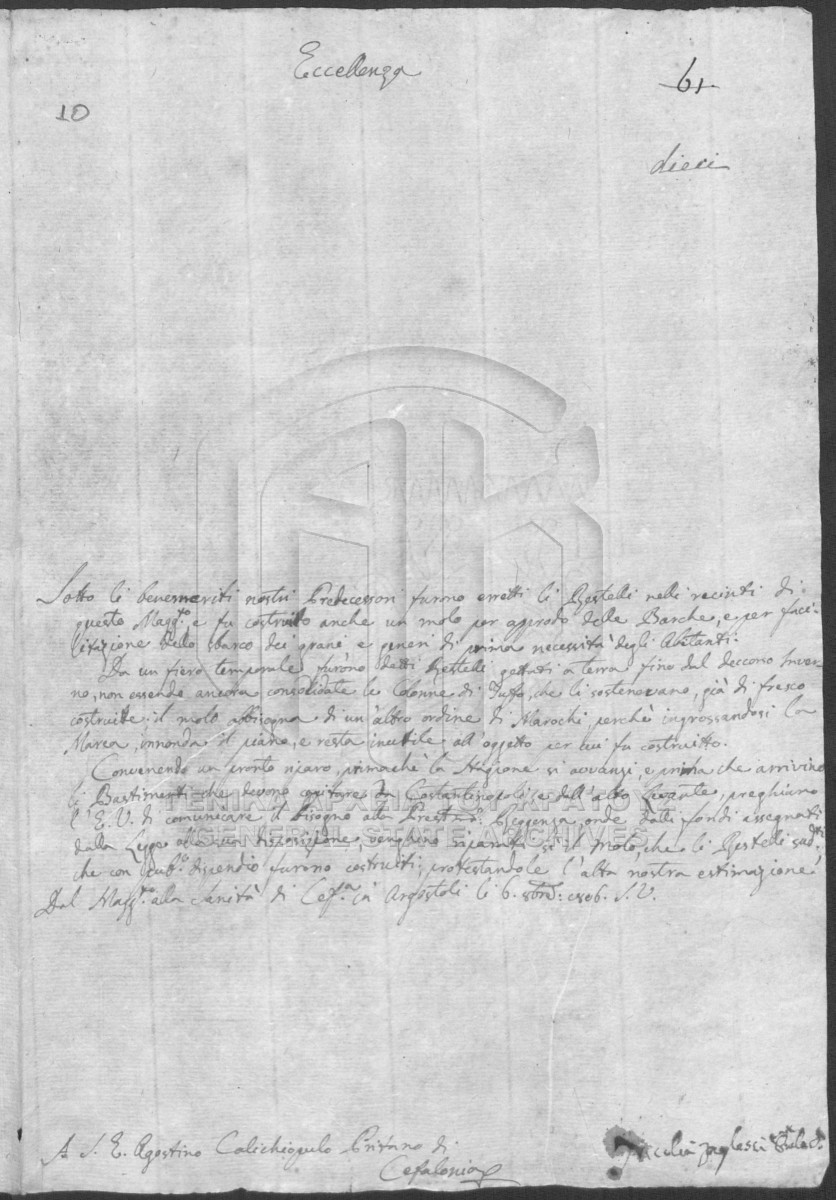 Eccellenza
61
10
dieci
Sotto li benemeriti nostri Predecessori furono erretti li Restelli nelli recinti di
questo Magg.to e fu costruito anche un molo per approdo delle Barche, e per faci-
litazione dello sbarco dei grani e generi di prima necessità degli Abitanti.
Da un fiero temporale furono detti Restelli gettati a terra fino dal deccorso Inver-
no, non essendo ancora consolidate le Colonne di Tuffo, che li sostenevano, già di fresco
costruitte: il molo abbisogna di un altro ordine di Marochi, perchè ingrossandosi la
Marea, innonda il piano, e resta inutile all'oggetto per cui fu costruitto.
Convenendo un pronto riparo, primachè la Stagione si avvanzi, e prima che arrivino
li Bastimenti che devono capitare da Costantinopoli e dall'alto Levante, preghiamo
l'E. V. di comunicare il bisogno alla Prestan: Reggenza, onde dalli fondi assegnati
dalla Legge alla sua disposizione, vengano riparati sì il molo, che li Restelli sud.tti
che con pub.o dispendio furono costruiti, protestandole l'alta nostra estimazione.
Dal Magg.to alla Sanità di Cef.a in Argostoli li 6. 8bre: 1806. S. V.
A S. E. Agostino Calichiopulo Pritano di
Cefalonia
ΓΕΝΙΚΑ ΑΡΧΕΙΑ ΤΟΥ ΚΡΑΤΟΥΣ
GENERAL STATE ARCHIVES